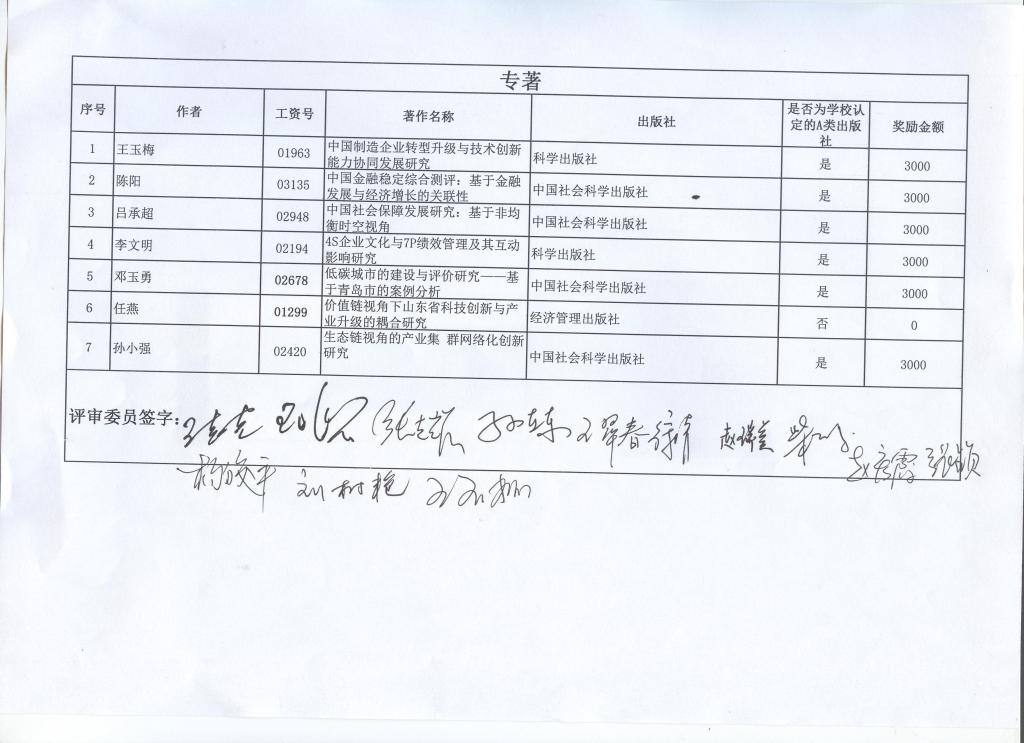 专著
序号 作者 工资号 著作名称 出版社 是否为学校认定的A类出版社 奖励金额
1 王玉梅 01963 中国制造企业转型升级与技术创新能力协同发展研究 科学出版社 是 3000
2 陈阳 03135 中国金融稳定综合测评：基于金融发展与经济增长的关联性 中国社会科学出版社 是 3000
3 吕承超 02948 中国社会保障发展研究：基于非均衡时空视角 中国社会科学出版社 是 3000
4 李文明 02194 4S企业文化与7P绩效管理及其互动影响研究 科学出版社 是 3000
5 邓玉勇 02678 低碳城市的建设与评价研究——基于青岛市的案例分析 中国社会科学出版社 是 3000
6 任燕 01299 价值链视角下山东省科技创新与产业升级的耦合研究 经济管理出版社 否 0
7 孙小强 02420 生态链视角的产业集 群网络化创新研究 中国社会科学出版社 是 3000
评审委员签字：
刘树艳